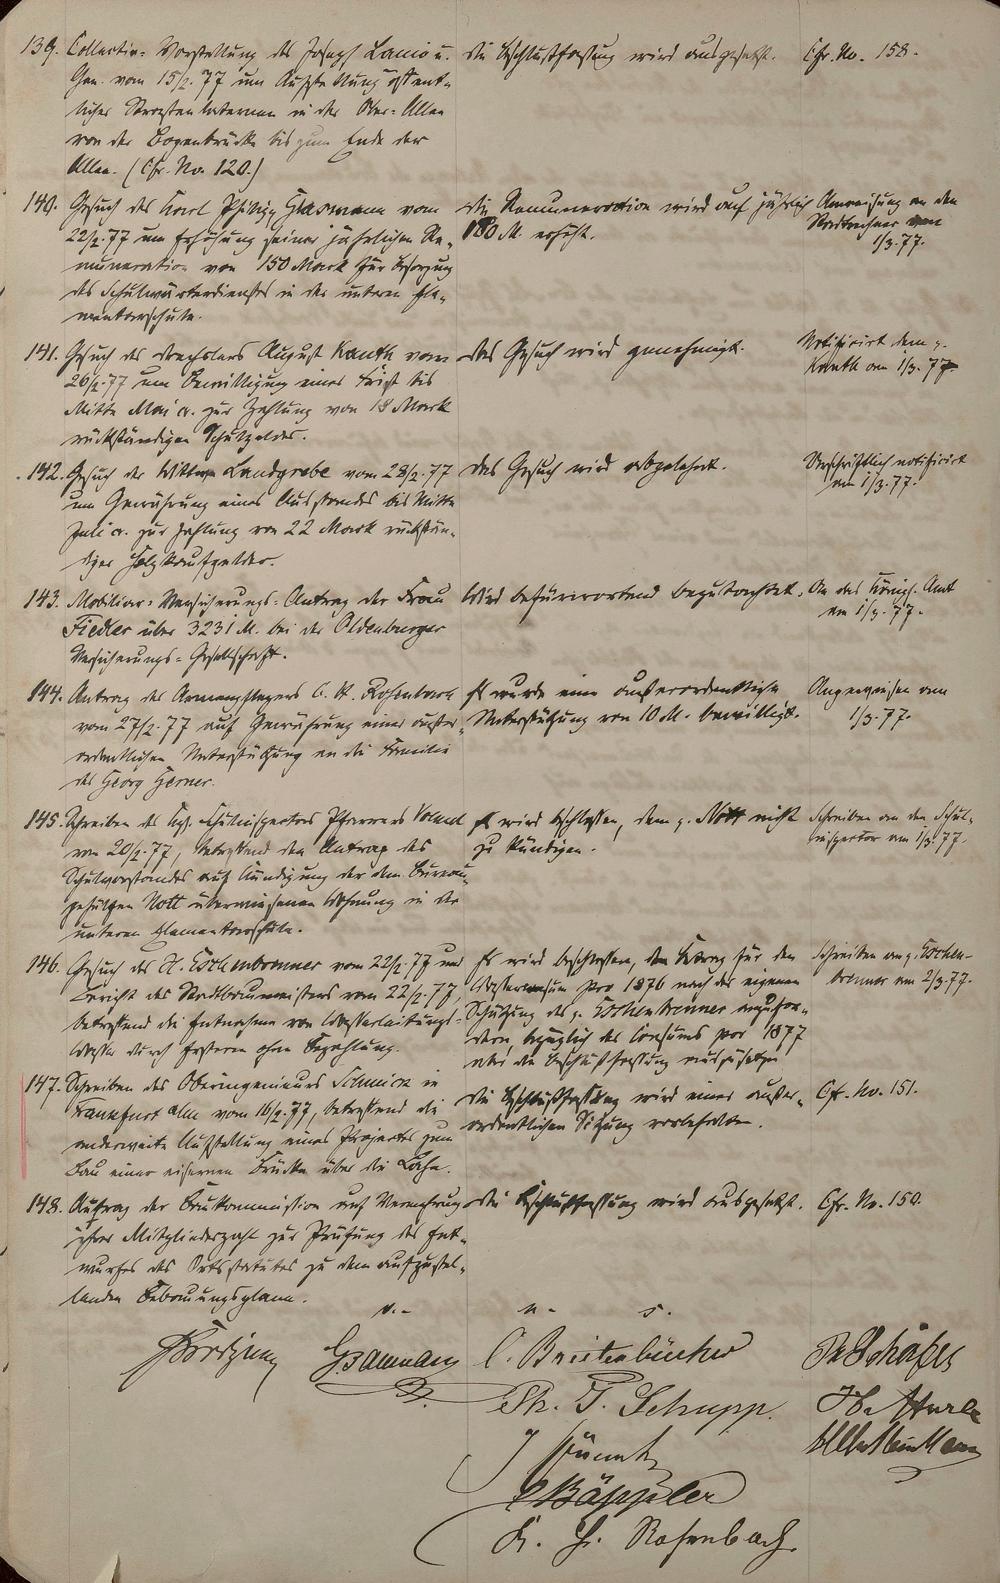 139. Collectiv-Vorstellung des Joseph Lanio u.
Gen. vom 15/2.77 um Aufstellung öffent-
licher Straßenlaternen in der Ober-Allee
von der Bogenbrücke bis zum Ende der
Allee. (Cfr. No. 120.)
Die Beschlußfassung wird ausgesetzt.
Cfr. No. 158.
140. Gesuch des Karl Philipp Glasmann vom
22/2.77 um Erhöhung seiner jährlichen Re-
muneration von 150 Mark für Besorgung
des Schulwärterdienstes in der unteren Ele-
mentarschule.
Die Remuneration wird auf jährlich
180 M. erhöht.
Anweisung an den
Stadtrechner am
1/3.77.
141. Gesuch des Drechslers August Kauth vom
26/2.77 um Bewilligung einer Frist bis
Mitte Mai cr. zur Zahlung von 18 Mark
rückständigen Schulgeldes.
Das Gesuch wird genehmigt.
Notificirt dem p.
Kauth am 1/3.77
142. Gesuch der Wittwe Landgrebe vom 28/2.77
um Gewährung eines Ausstandes bis Mitte
Juli cr. zur Zahlung von 22 Mark rückstän-
diger Holzkaufgelder.
Das Gesuch wird abgelehnt.
Urschriftlich notificirt
am 1/3.77.
143. Mobiliar-Versicherungs-Antrag der Frau
Fiedler über 3231 M. bei der Oldenburger
Versicherungs-Gesellschaft.
Wird befürwortend begutachtet.
An das Königl. Amt
am 1/3.77.
144. Antrag des Armenpflegers C. H. Rosenbach
vom 27/2.77 auf Gewährung einer außer-
ordentlichen Unterstützung an die Familie
des Georg Gerner.
Es wurde eine außerordentliche
Unterstützung von 10 M. bewilligt.
Angewiesen am
1/3.77.
145. Schreiben des Kgl. Schulinspectors Pfarrers
vom 20/2.77, betreffend den Antrag des
Schulvorstandes auf Kündigung der dem Bureau-
gehülfen Nott überwiesenen Wohnung in der
unteren Elementarschule.
Es wird beschlossen, dem p. Nott nicht
zu kündigen.
Schreiben an den Schul-
inspector am 1/3.77.
146. Gesuch des H. Eschenbrenner vom 22/2.77 und
Bericht des Stadtbaumeisters vom 22/2.77,
betreffend die Entnahme von Wasserleitungs-
Wasser durch Ersteren ohne Bezahlung.
Es wird beschlossen, den Betrag für den
Wasserconsum pro 1876 nach der eigenen
Schätzung des p. Eschenbrenner anzufor-
dern, bezüglich des Consums pro 1877
aber die Beschlußfassung auszusetzen
Schreiben an p. Eschen-
brenner am 2/3.77.
147. Schreiben des Oberingenieurs Schmick in
Frankfurt a/m vom 16/2.77, betreffend die
anderweite Aufstellung eines Projectes zum
Bau einer eisernen Brücke über die Lahn.
Die Beschlußfassung wird einer außer-
ordentlichen Sitzung vorbehalten.
Cfr. No. 151.
148. Antrag der Baukommission auf Vermehrung
ihrer Mitgliederzahl zur Prüfung des Ent-
wurfes des Ortsstatutes zu dem aufzustel-
lenden Bebauungsplane.
Die Beschlußfassung wird ausgesetzt.
Cfr. No. 150.
v. - u. - s.
C. Breitenbücher
Schäfer
Th. F. Schupp.
Bäppler
K. H. Rosenbach.